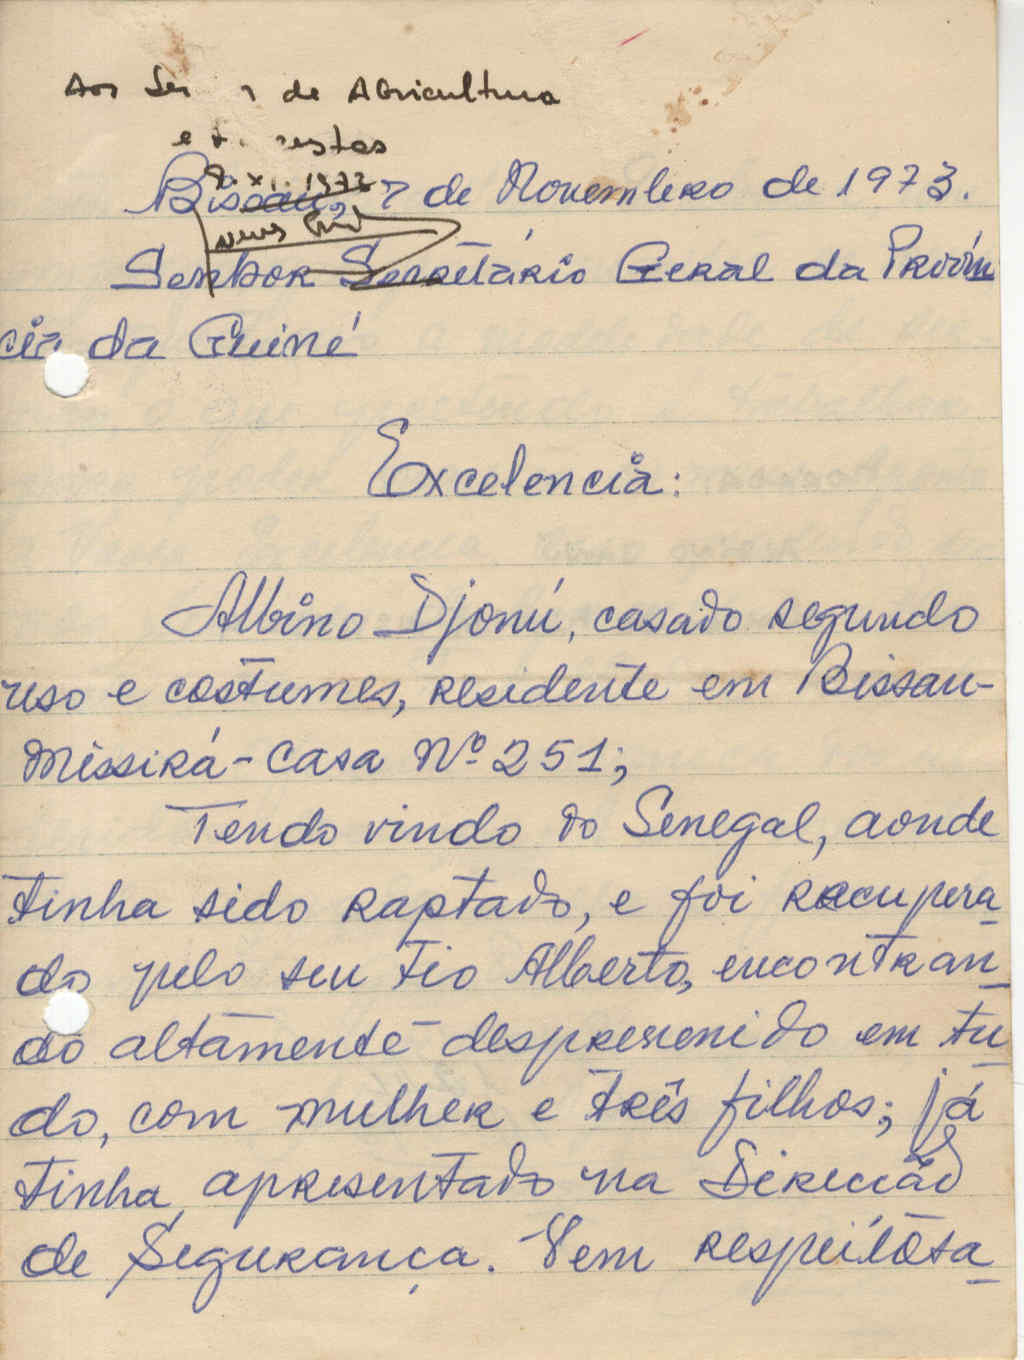 Aos de Agricultura
e
8.XI.1973
Bissau, 7 de Novembero de 1973.
Senhor Secretário Geral da Provín
cia da Guiné
Excelencia:
Albino Djonú, casado segundo
uso e costumes, residente em Bissau-
Missirá-Casa Nº 251;
Tendo vindo do Senegal, aonde
tinha sido raptado, e foi recupera_
do pelo seu tio Alberto, encontran_
do altamente desprevenido em tu_
do, com mulher e três filhos; já
tinha apresentado na Direcção
de Segurança. Vem respeitosa_